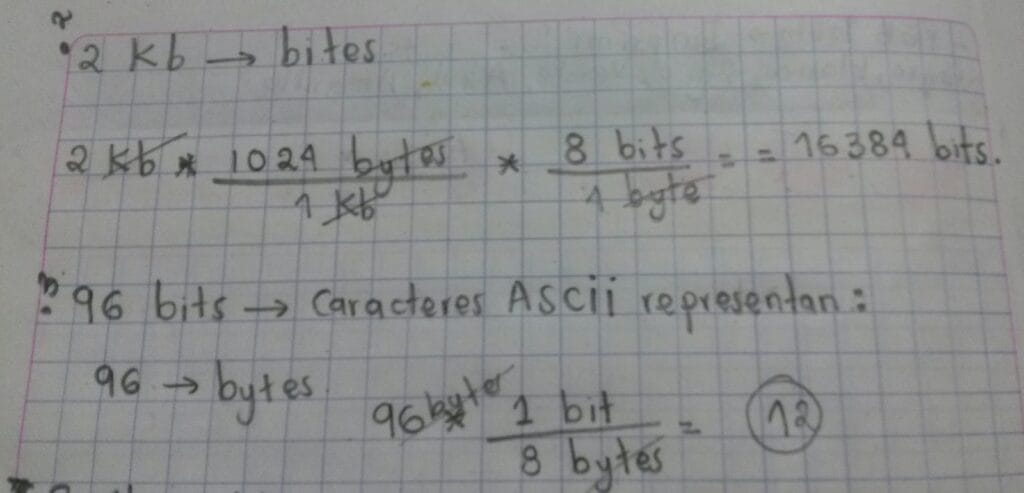 2 Kb → bites
2 Kb * 1024 bytes / 1 Kb * 8 bits / 1 byte = = 16384 bits.
96 bits → Caracteres ASCii representan:
96 → bytes
96 bytes * 1 bit / 8 bytes = 12